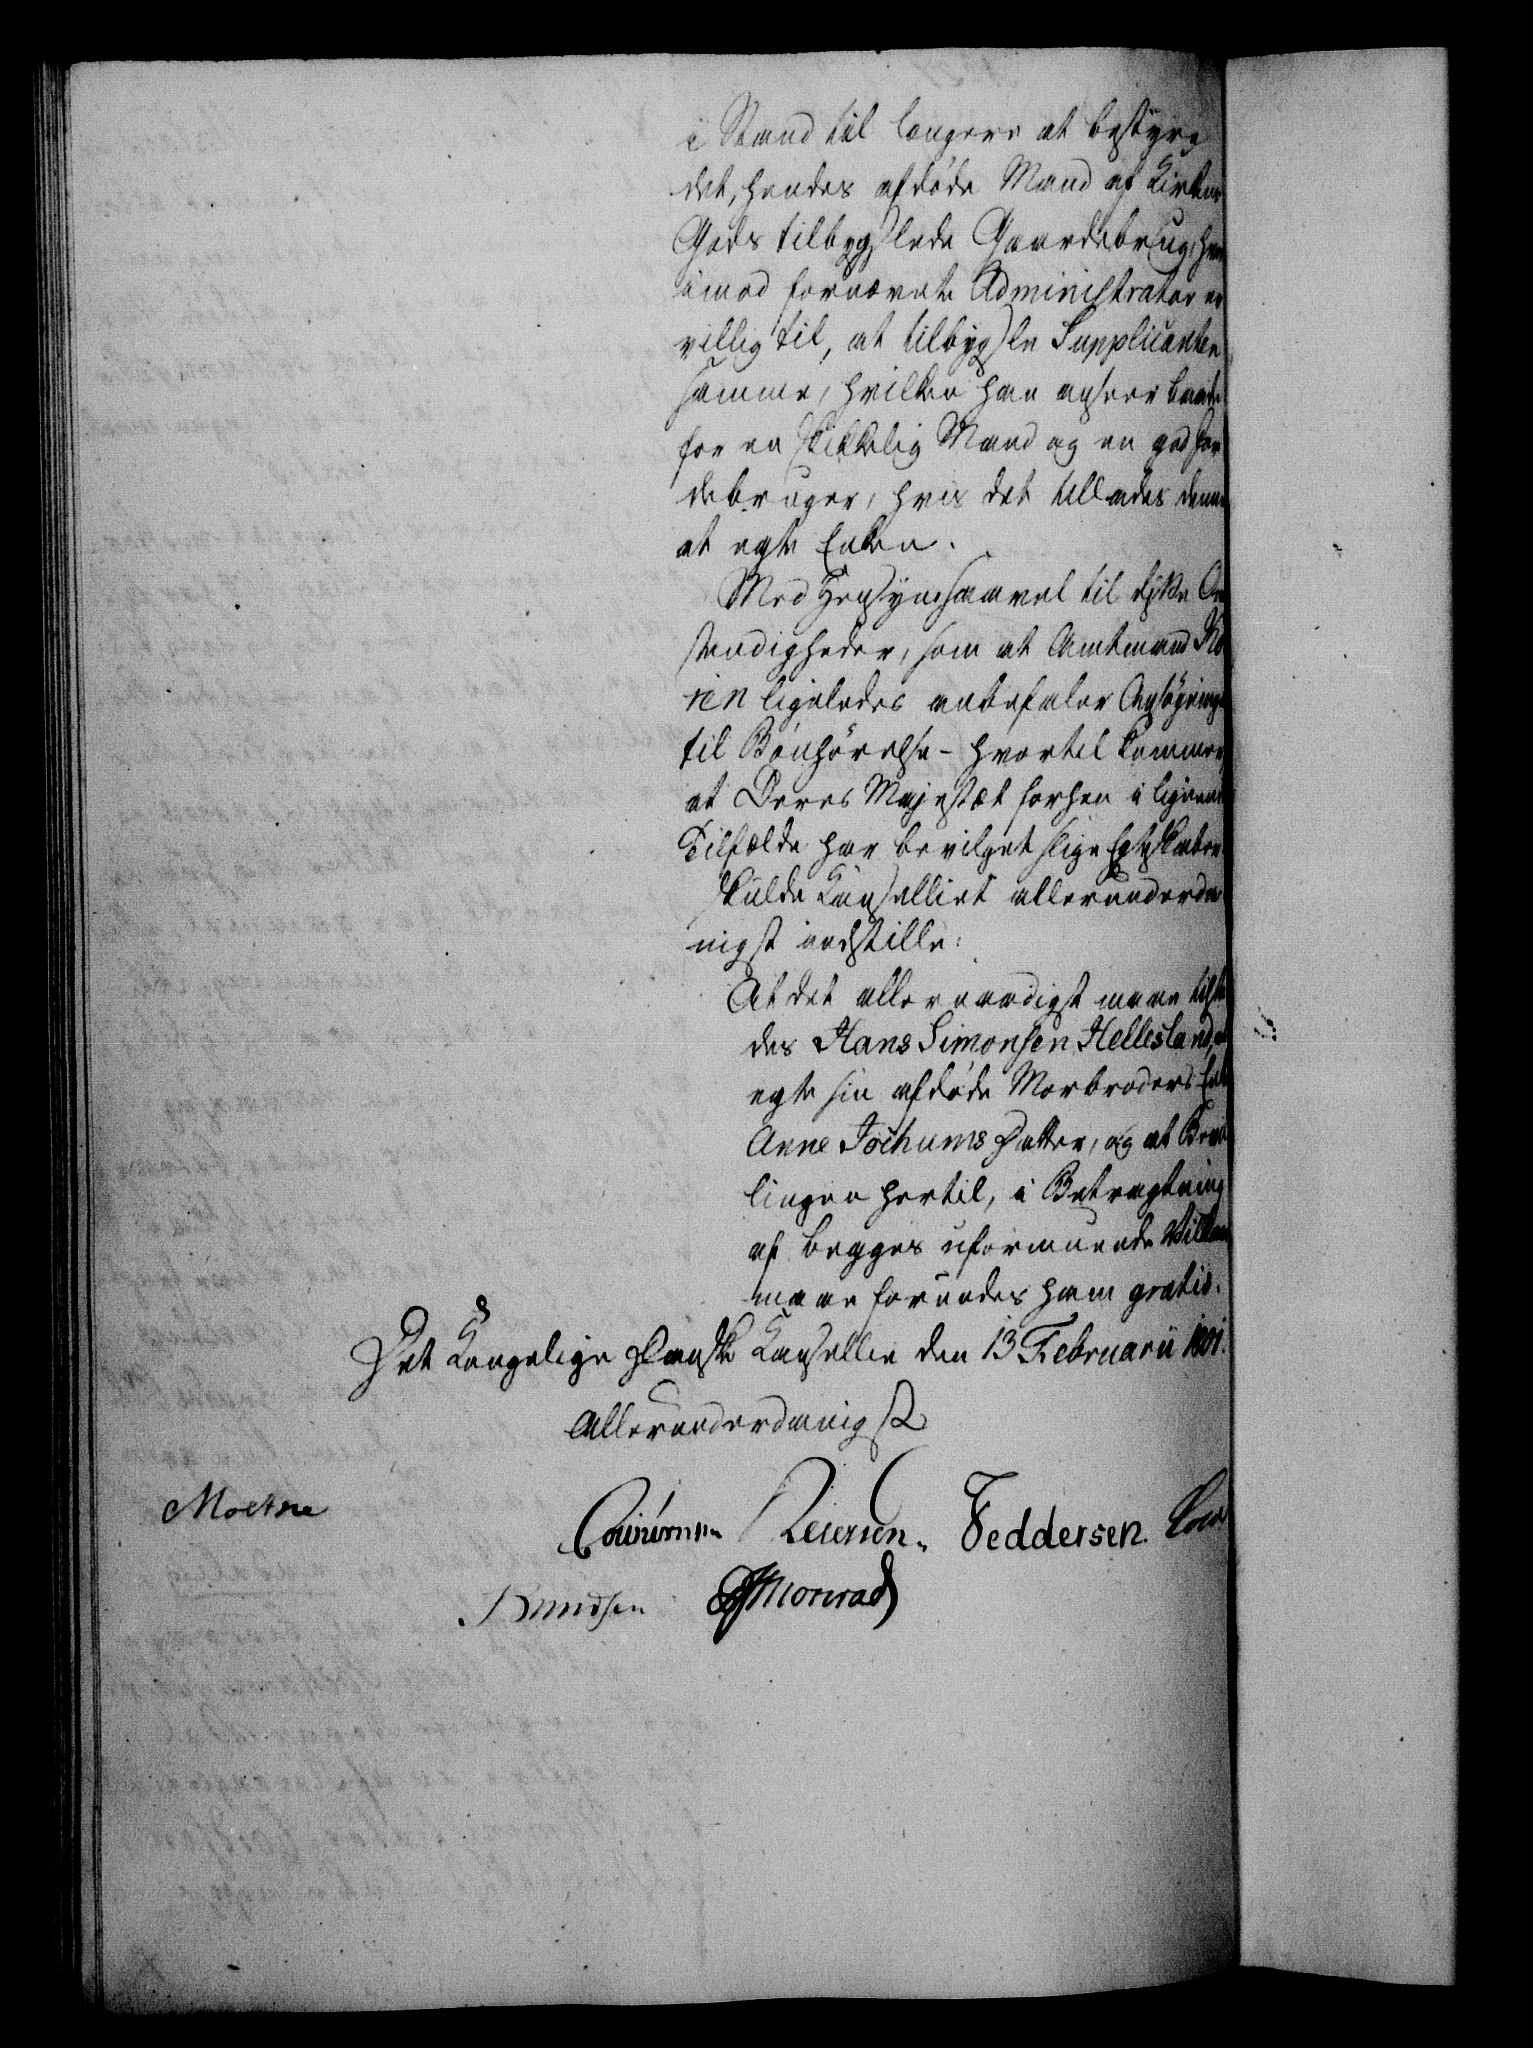 i Stand til længere at bestyre
det, hendes afdøde Mand af Kirkens
Gods tilbygslede Gaardebrug, hvor
imod fornævnte Administrator er
villig til, at tilbygsle Supplicanten
samme, hvilken han anseer baade
for en skikkelig Mand og en god Jor
debruger, hvis det tillades denne
at egte Enken.
Med Hensyn saavel til disse Om
stendigheder, som at Amtmand
ligeledes anbefaler Ansøgningen
til Bønhørelse - hvortil kommer,
at Deres Majestæt forhen i lignende
Tilfælde har bevilget slige Egteskaber
skulde Kanselliet allerunderda
nigst indstille:
At det allernaadigst maae tilste
des Hans Simonsen Hellesland, at
egte sin afdøde Morbroders Enke
Anne Jochums Datter, og at Bevil
lingen hertil, i Betragtning
af begges uformuende Vilkaar
maae forundes ham gratis.
Det Kongelige Danske Kansellie den 13 Februarii 1801.
Allerunderdanigst
Moltke
Feddersen
Knudsen Monrad